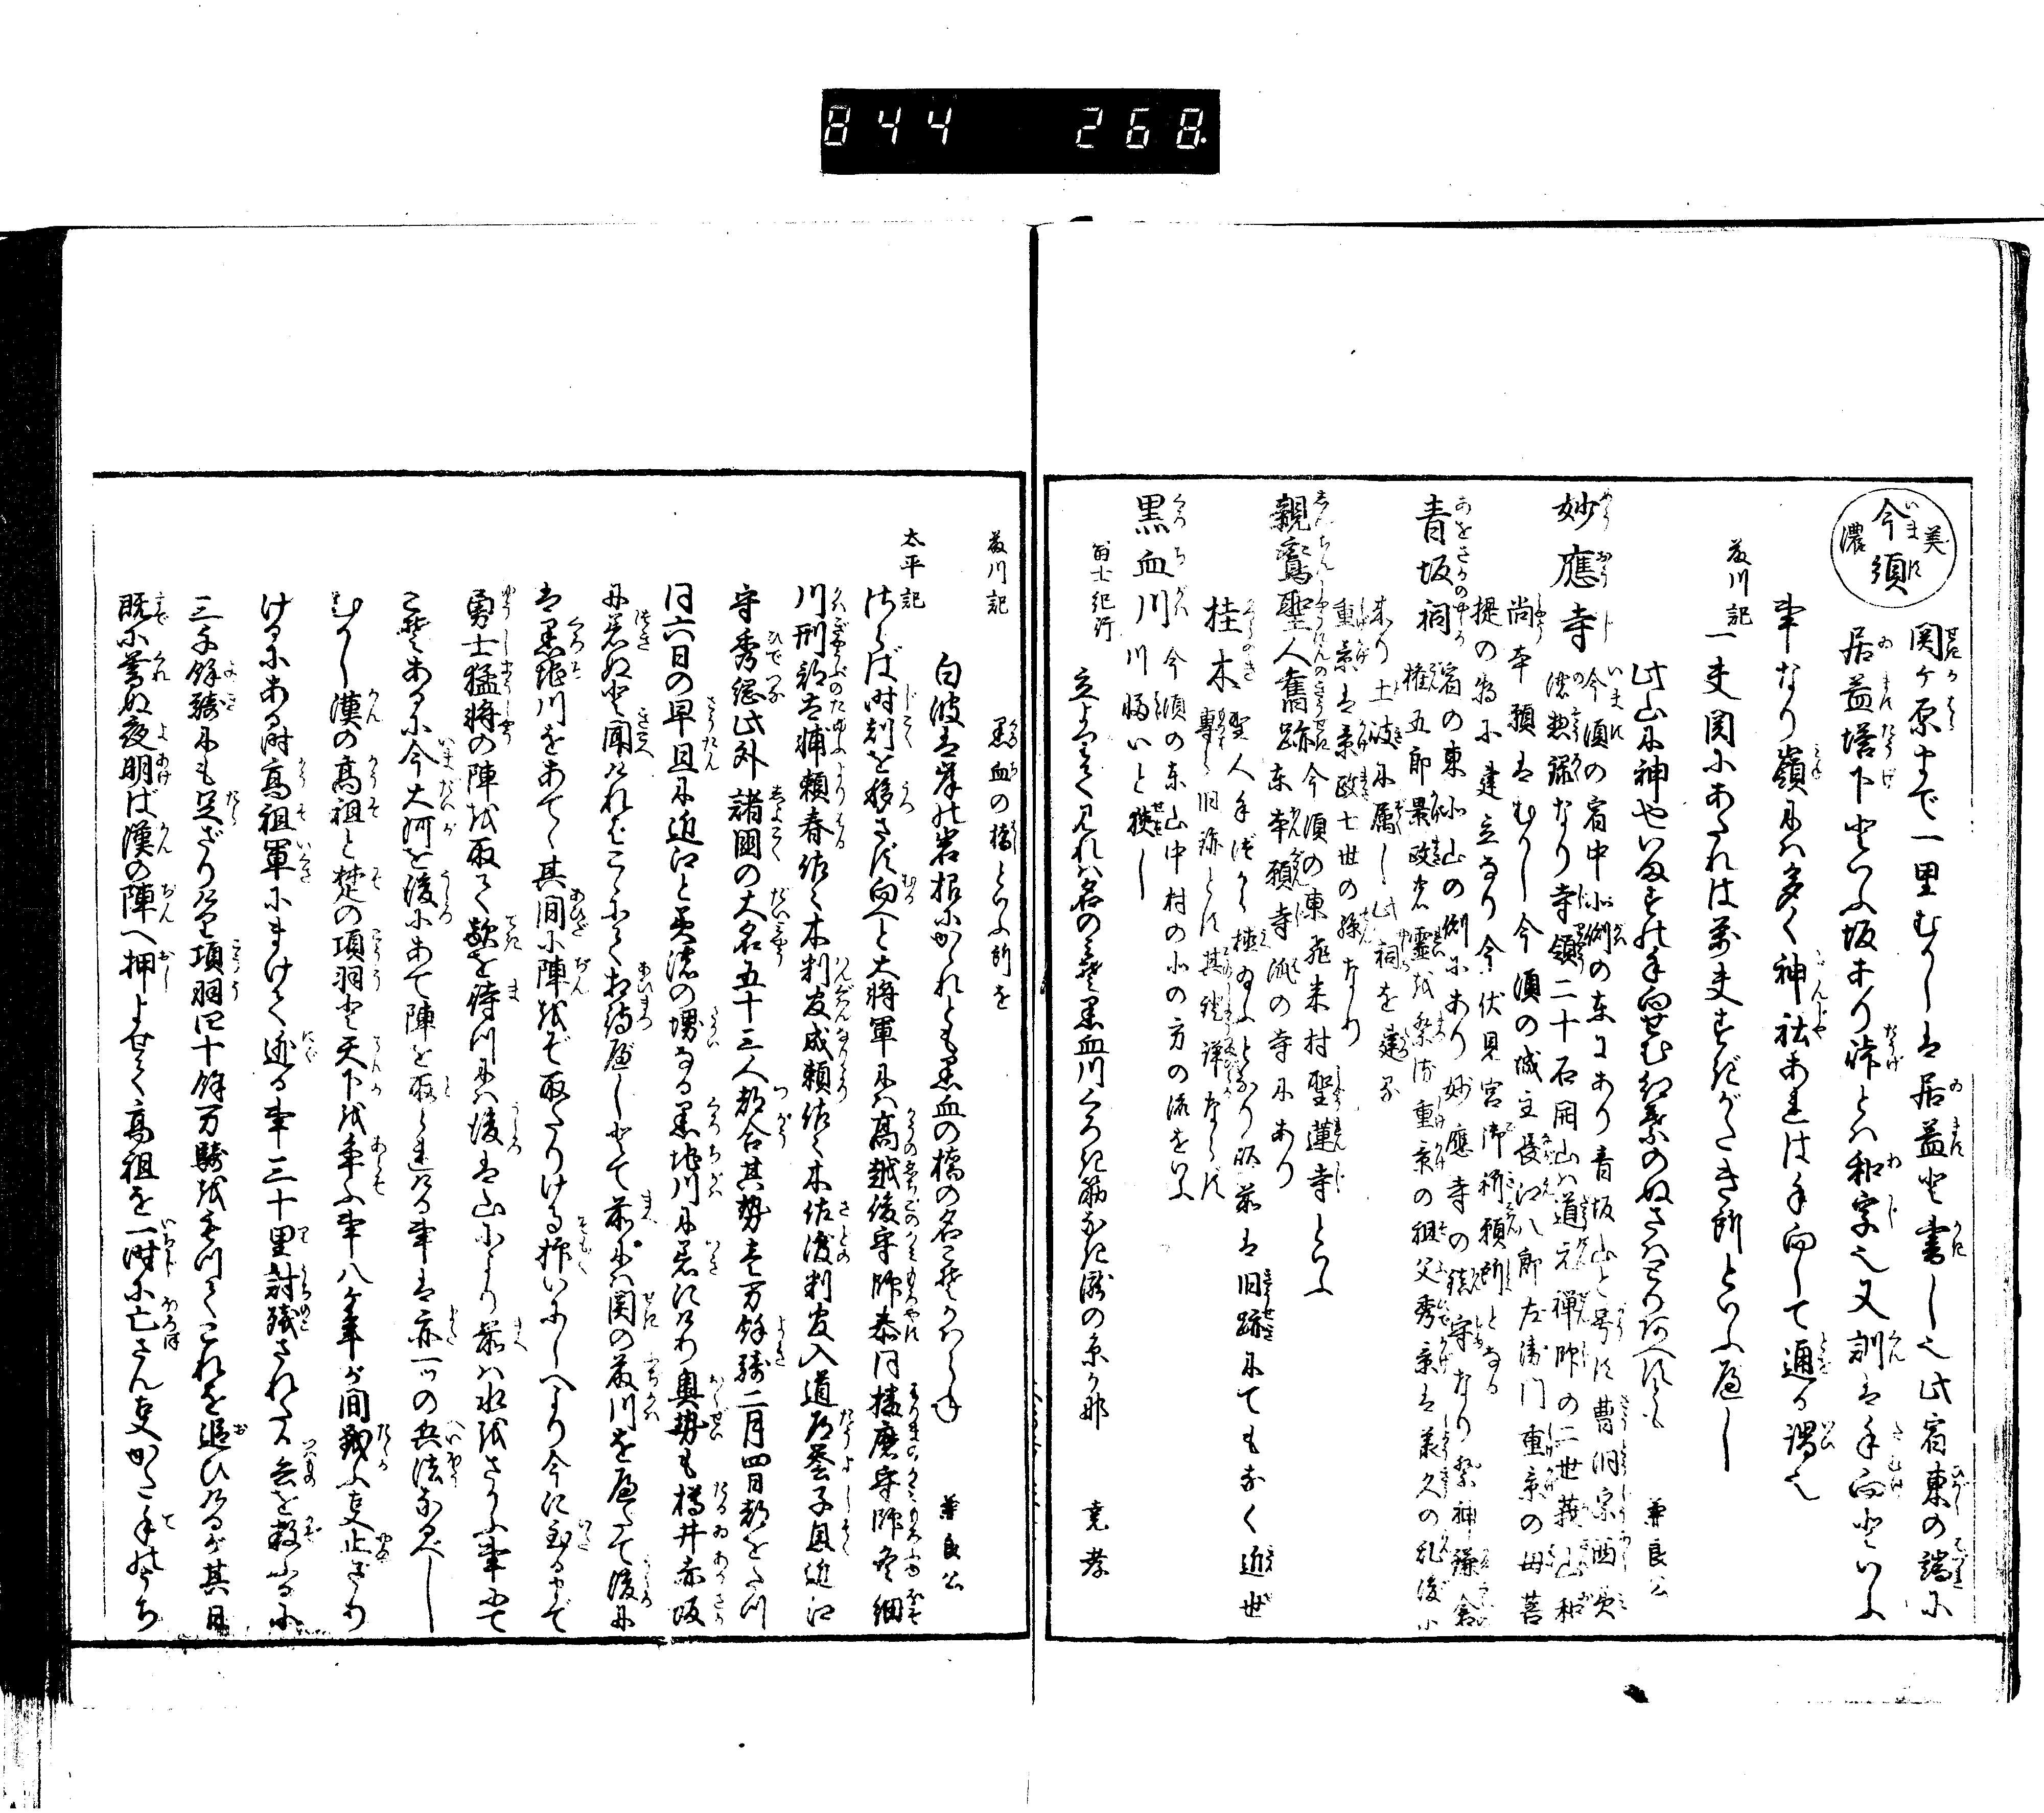 844 268
美濃
今須
関ヶ原まで一里むかしは居益と書し也此宿東の端に
居益塔下といふ坂あり峠とハ和字也又訓は手向といふ
事なり嶺にハ多く神社あれは手向して通る謂也
藤川記
兼良公
一夫関にあたれは万夫すぎがたき所といふべし
妙應寺
今須の宿中北側の東にあり青坂山と号す曹洞宗西美
濃惣録なり寺領二十石開山ハ道元禅師の二世莪山和
尚本願はむかし今須の城主長江八郎左衛門重景の母菩
提の為に建立なり今伏見宮御祈願所となる
青坂祠
宿の東北山の側にあり妙應寺の鎮守なり祭神鎌倉
権五郎景政の霊を祭る重景の祖父秀景は承久の乱後に
来り土岐に属し此祠を建る
重景は景政七世の孫なり
親鸞聖人舊跡
今須の東 村聖蓮寺といふ
東本願寺流の寺にあり
桂木
聖人手づから植給ふとなり
専ら旧跡とす其証詳ならず
黒血川
今須の東山中村の北の方の流をいふ
川幅いと狭し
富士紀行
堯孝
藤川記
黒血の橋といふ所を
白波は岸の岩根にかかれとも黒血の橋の名こそかハらね
兼良公
太平記
さらば時刻を移さず向へと大将軍にハ高越後守師泰同播磨守師冬細
川刑部大輔頼春佐々木判官成頼佐々木佐渡判官入道道誉子息近江
守秀綱此外諸國の大名五十三人都合其勢壱万餘騎二月四日都をたつ
同六日の早旦に近江と美濃の堺なる黒地川に着にけり奥勢も樽井赤坂
に着ぬと聞けれバこゝにて相待べしとて前にハ関の藤川を隔て後に
は黒地川をあてゝ其間に陣をぞ取たりける抑いにしへより今に至るまで
勇士猛将の陣を取て敵を待つにハ後は山により前ハ水をさかふ事にて
こそあるに今大河を後にあて陣を取られける事は亦一つの兵法なるべし
むかし漢の高祖と楚の項羽と天下を争ふ事八ヶ年が間戦ふ事止ざり
けるにある時高祖軍にまけて逃る事三十里討残されたる兵を数ふるに
三千餘騎にも足ざりけり項羽四十餘万騎をもつてこれを追ひけるが其日
既に暮ぬ夜明ば漢の陣へ押よせて高祖を一時に亡さん事かたて手のうち